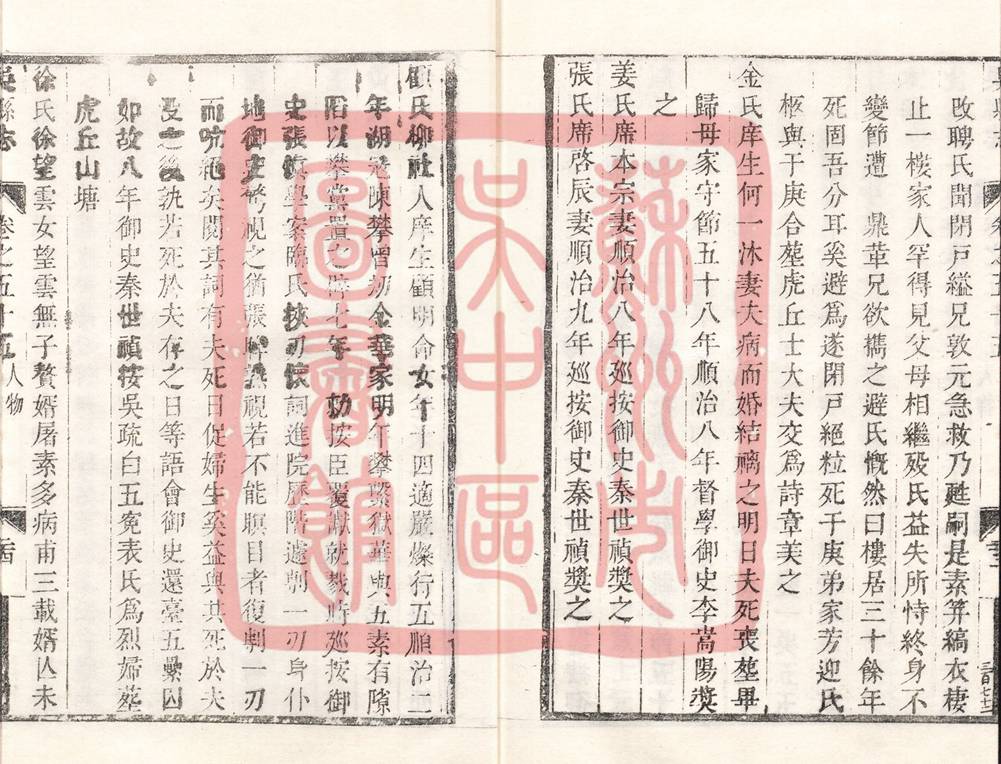 改聘氏聞閉戶縊兄敦元急救乃甦嗣是素笄縞衣棲
止一楼家人罕得見父母相繼殁氏益失所恃終身不
變節遭 鼎革兄欲檇之避氏慨然曰樓居三十餘年
死固吾分耳奚避爲遂閉戸絕粒死于庚弟家芳迎氏
柩與于庚合塟虎丘士大夫交爲詩章美之
金氏庠生何一沐妻夫病而婚結褵之明日夫死喪塟畢
歸母家守節五十八年順治八年督學御史李嵩陽奬
之
姜氏席本宗妻順治八年廵按御史秦世禎奬之
張氏席啓辰妻順治九年廵按御史秦世禎奬之
顧氏柳社人庠生顧明侖女年十四適嚴燦行五順治三
年湖寇陳攀僧刼金華家明年攀繫獄華與五素有隙
䧟以攀黨置之辟七年 按臣覆讞就戮時廵按御
史張慎學案臨氏挾刃懷詞進院歷階遽剄一刃身仆
地御史驚視之猶張 視若不能瞑目者復剸一刃
而吭絕矣閱其詞有夫死曰促婦生奚益與其死於夫
没之後孰若死於夫存之日等語會御史還臺五纍囚
如故八年御史秦世禎按吳疏白五寃表氏爲烈婦塟
虎丘山塘
徐氏徐望雲女望雲無子贅婿屠素多病甫三載婿亾未
吳縣志
卷之五十五 人物
蘇州市
吳中區
圖書館